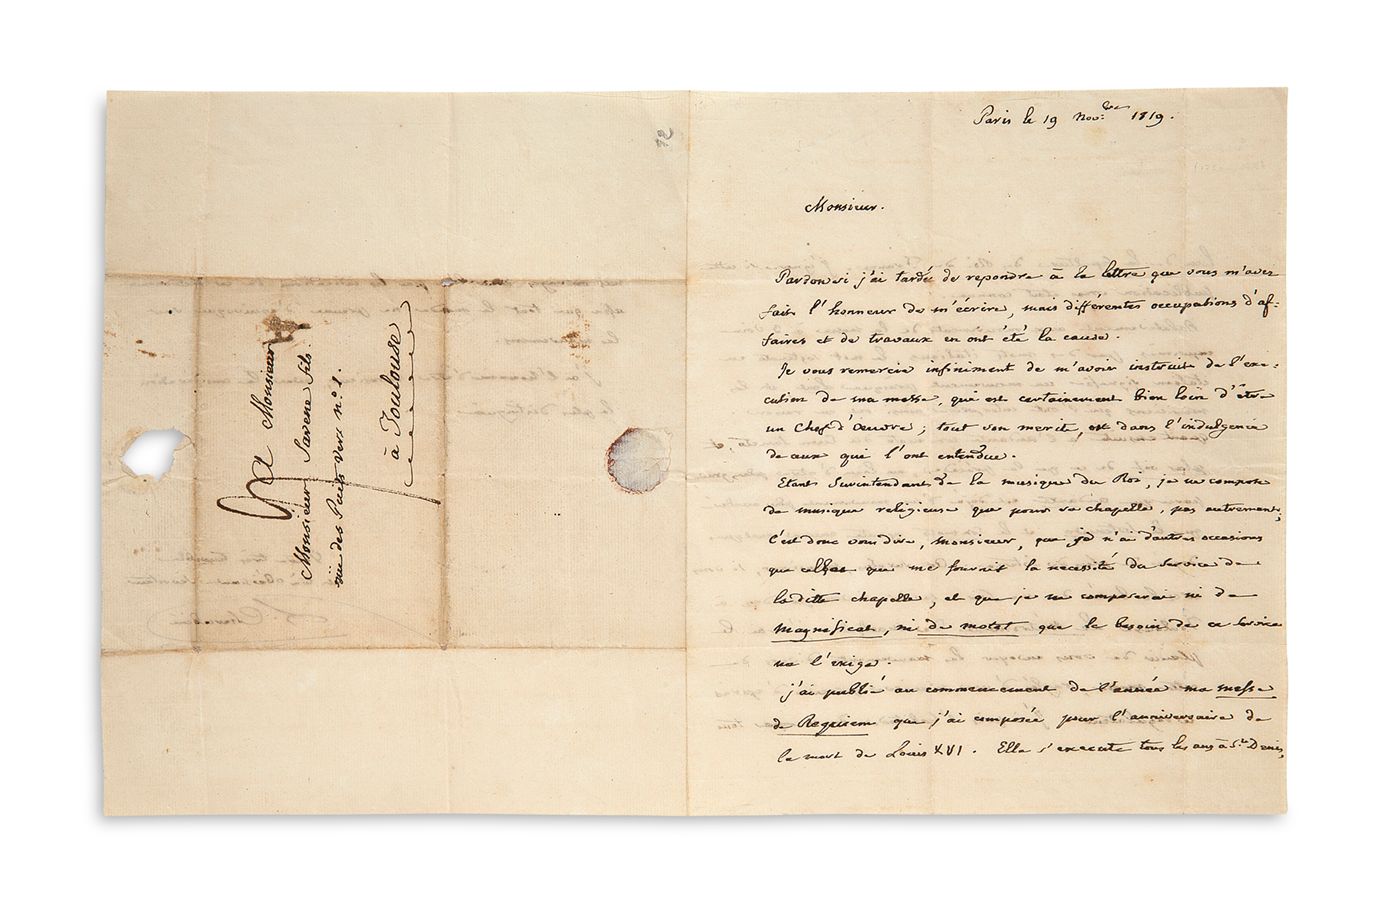 Paris le 19 Nov.bre 1819.
Monsieur.
Pardon si j'ai tardé de repondre à la lettre que vous m'avez
faite l'honneur de m'écrire, mais différentes occupations d'af-
faires et de travaux en ont été la cause.
Je vous remercie infiniment de m'avoir instruite de l'exe-
cution de ma messe, qui est certainement bien loin d'être
un Chef d'Œuvre; tout son merite est dans l'indulgence
de ceux qui l'ont entendue.
Etant Surintendant de la musique du Roi, je ne compose
de musique religieuse que pour sa chapelle, pas autrement;
c'est donc vous dire, Monsieur, que je n'ai d'autres occasions
que celles que me fournit la necessité du Service de
la ditte chapelle, et que je ne composerai ni de
Magnificat, ni de motet que le besoin de ce Service
ne l'exige.
J'ai publié au commencement de l'année ma messe
de Requiem que j'ai composée pour l'anniversaire de
la mort de Louis XVI. Elle s'execute tous les ans à St. Denis,
A Monsieur
Monsieur Savene fils.
rüe des Puits Verts n.° 1.
à Toulouse